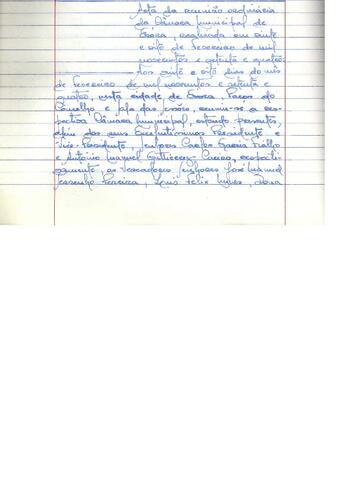 Acta da reunião ordinária
da Câmara Municipal de
Évora, realizada em vinte
e oito de Fevereiro de mil
novecentos e setenta e quatro:
Aos vinte e oito dias do mês
de Fevereiro de mil novecentos e setenta e
quatro, nesta cidade de Évora, Paços do
Concelho e sala das sessões, reuniu-se a res-
pectiva Câmara Municipal, estando presentes,
além dos seus Excelentíssimos Presidente e
Vice-Presidente, senhores Carlos Garcia Fialho
e António Manuel Gutierrez Canao, respecti-
vamente, os Vereadores senhores José Manuel
Pereira, Luís Felix Nunes,